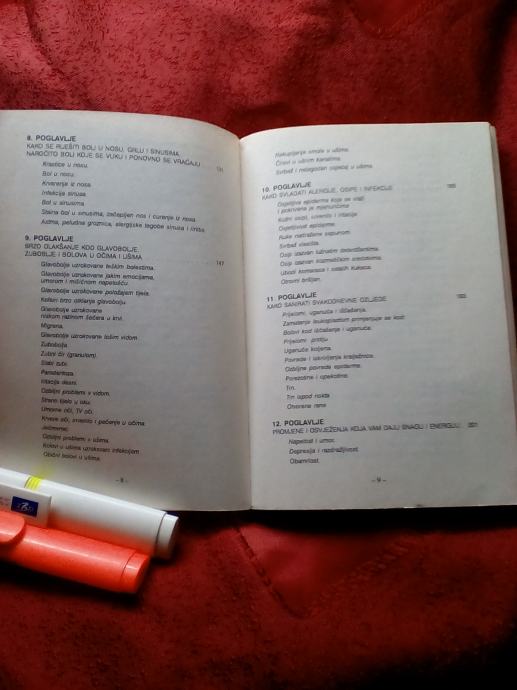 8. POGLAVLJE
KAKO SE RIJEŠITI BOLI U NOSU, GRLU I SINUSIMA.
NAROČITO BOLI KOJE SE VUKU I PONOVNO SE VRAĆAJU
Krastice u nosu.
Bol u nosu.
Krvarenje iz nosa.
Infekcija sinusa.
Bol u sinusima
Stalna bol u sinusima, začepljen nos i curenje iz nosa.
Astma, peludna groznica, alergijske tegobe sinusa i
9. POGLAVLJE
BRZO OLAKŠANJE KOD GLAVOBOLJE,
ZUBOBOLJE I BOLOVA U OČIMA I UŠIMA 147
Glavobolje uzrokovane teškim bolestima.
Glavobolje uzrokovane jakim emocijama,
umorom i mišićnom napetošću.
Glavobolje uzrokovane položajem tijela.
Kofein brzo otklanja glavobolju
Glavobolje uzrokovane
niskom razinom šećera u krvi.
Migrena.
Glavobolje uzrokovane lošim vidom
Zubobolja.
Zubni čir (granulom).
Slabi zubi.
Paradentoza.
Iritacija desni.
Ozbiljni problemi s vidom.
Strano tijelo u oku.
Umorne oči, TV oči.
Krvave oči, crvenilo i pečenje u očima
Ječmenac.
Ozbiljni problemi s ušima.
Bolovi u ušima uzrokovani infekcijom
Obični bolovi u ušima.
– 8 –
Nakupljanje smole u ušima.
Čirevi u ušnim kanalima.
Svrbež i nelagodan osjećaj u ušima.
10. POGLAVLJE
KAKO SVLADATI ALERGIJE, OSIPE I INFEKCIJE
Osjetljiva epiderma koja se vlaži
i pokrivena je mjehurićima
Kožni osipi, crvenilo i iritacije
Osjetljivost epiderme.
Ruke nadražene sapunom.
Svrbež vlasišta.
Osip izazvan rubnim deterdžentima.
Osip izazvan kozmetičkim sredstvima.
Ubodi komaraca i ostalih kukaca.
Otrovni bršljan.
11. POGLAVLJE
KAKO SANIRATI SVAKODNEVNE OZLJEDE
Prijelomi, uganuća i iščašenja.
Zamatanje leukoplastom primjenjuje se kod:
Bolovi kod iščašenja i uganuća.
Prijelomi prstiju
Uganuće koljena.
Povrede i iskrivljenja kralježnice.
Ozbiljne povrede epiderme.
Porezotine i opekotine.
Trn.
Trn ispod nokta
Otvorena rana
12. POGLAVLJE
PROMJENE I OSVJEŽENJA KOJA VAM DAJU SNAGU I ENERGIJU 201
Napetost i umor.
Depresija i razdražljivost
Obamrlost.
– 9 –